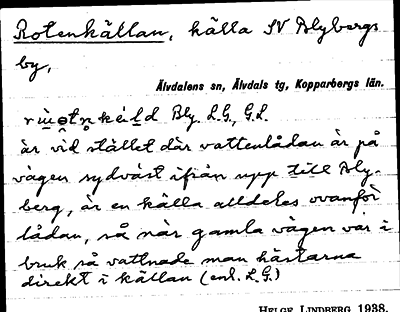 Rotenkällan, källa SV Blybergs
by,
Älvdalens sn, Älvdals tg, Kopparbergs län.
Bly. L.G., G.L.
är vid stället där vattenlådan är på
vägen sydväst ifrån upp till Bly-
berg, är en källa alldeles ovanför
lådan, så när gamla vägen var i
bruk så vattnade man hästarna
direkt i källan (enl. L.G.)
HELGE LINDBERG 1938.